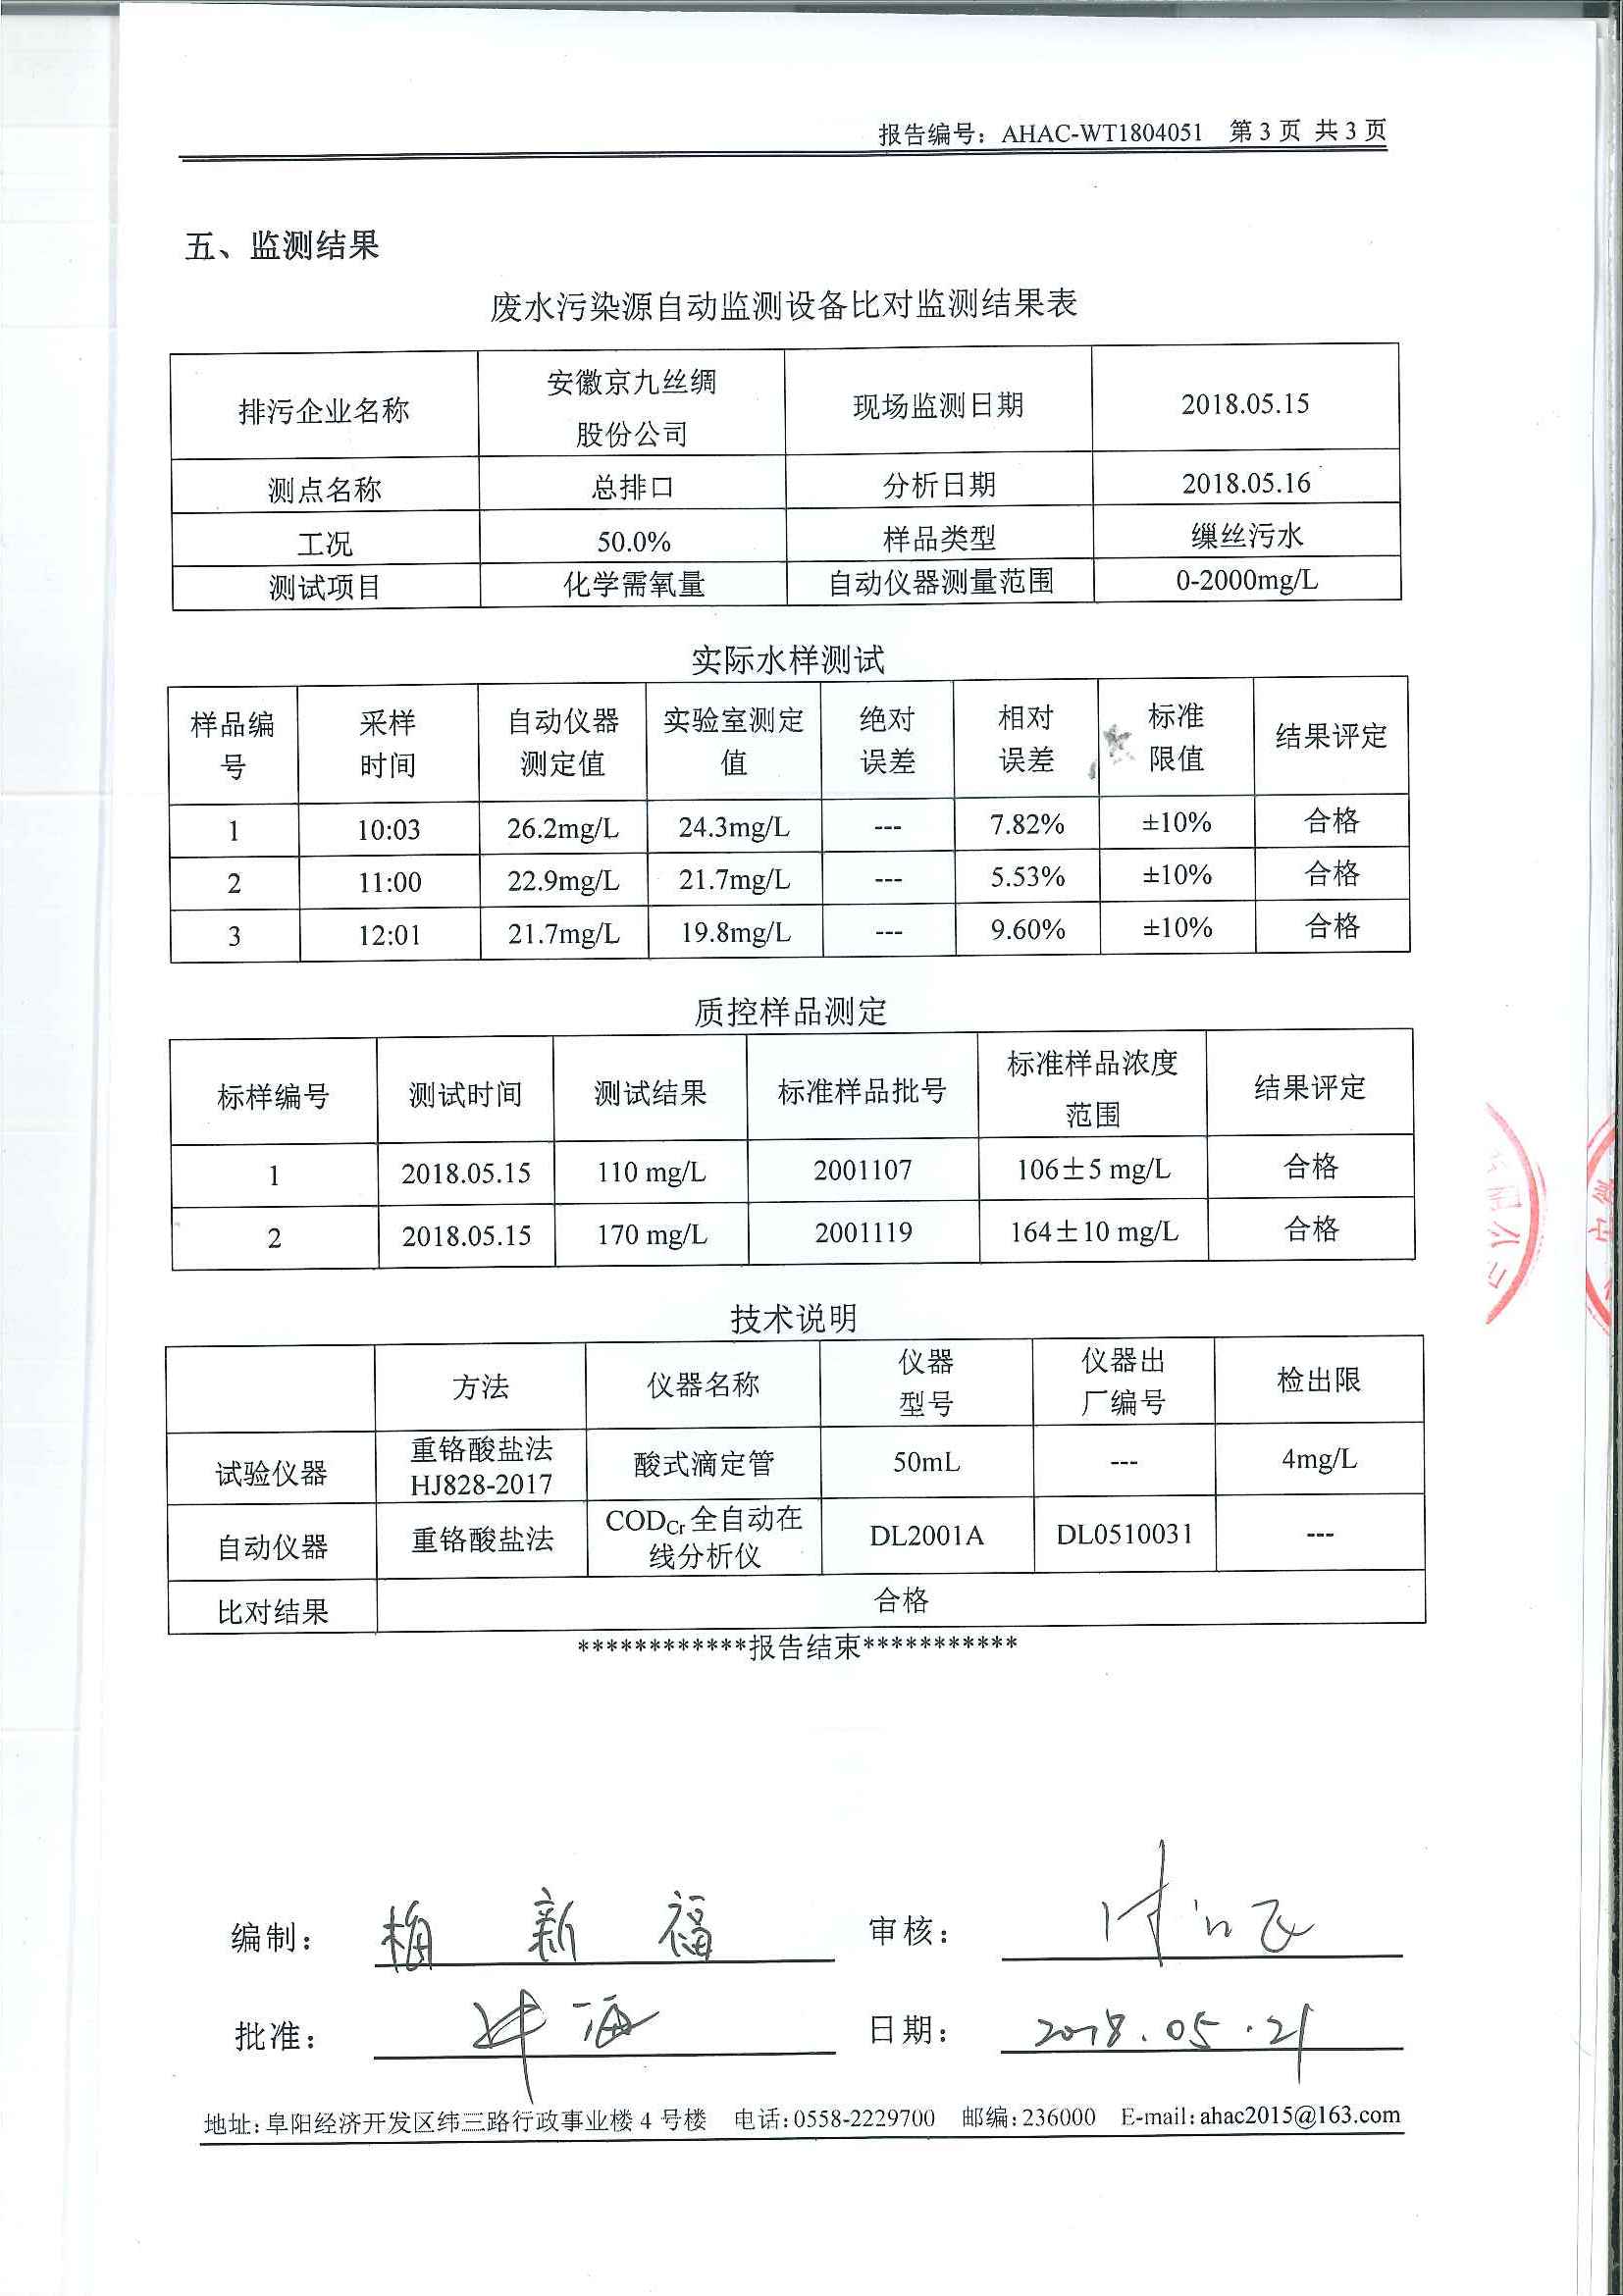 报告编号：AHAC-WT1804051 第3页 共3页
五、监测结果
废水污染源自动监测设备比对监测结果表
排污企业名称 安徽京九丝绸股份公司 现场监测日期 2018.05.15
测点名称 总排口 分析日期 2018.05.16
工况 50.0% 样品类型 缫丝污水
测试项目 化学需氧量 自动仪器测量范围 0-2000mg/L
实际水样测试
样品编号 采样时间 自动仪器测定值 实验室测定值 绝对误差 相对误差 标准限值 结果评定
1 10:03 26.2mg/L 24.3mg/L --- 7.82% ±10% 合格
2 11:00 22.9mg/L 21.7mg/L --- 5.53% ±10% 合格
3 12:01 21.7mg/L 19.8mg/L --- 9.60% ±10% 合格
质控样品测定
标样编号 测试时间 测试结果 标准样品批号 标准样品浓度范围 结果评定
1 2018.05.15 110 mg/L 2001107 106±5 mg/L 合格
2 2018.05.15 170 mg/L 2001119 164±10 mg/L 合格
技术说明
方法 仪器名称 仪器型号 仪器出厂编号 检出限
试验仪器 重铬酸盐法 HJ828-2017 酸式滴定管 50mL --- 4mg/L
自动仪器 重铬酸盐法 CODCr全自动在线分析仪 DL2001A DL0510031 ---
比对结果 合格
************报告结束***********
编制： 梅新福 审核：
批准： 日期： 2018.05.21
地址：阜阳经济开发区纬三路行政事业楼 4 号楼 电话：0558-2229700 邮编：236000 E-mail：ahac2015@163.com